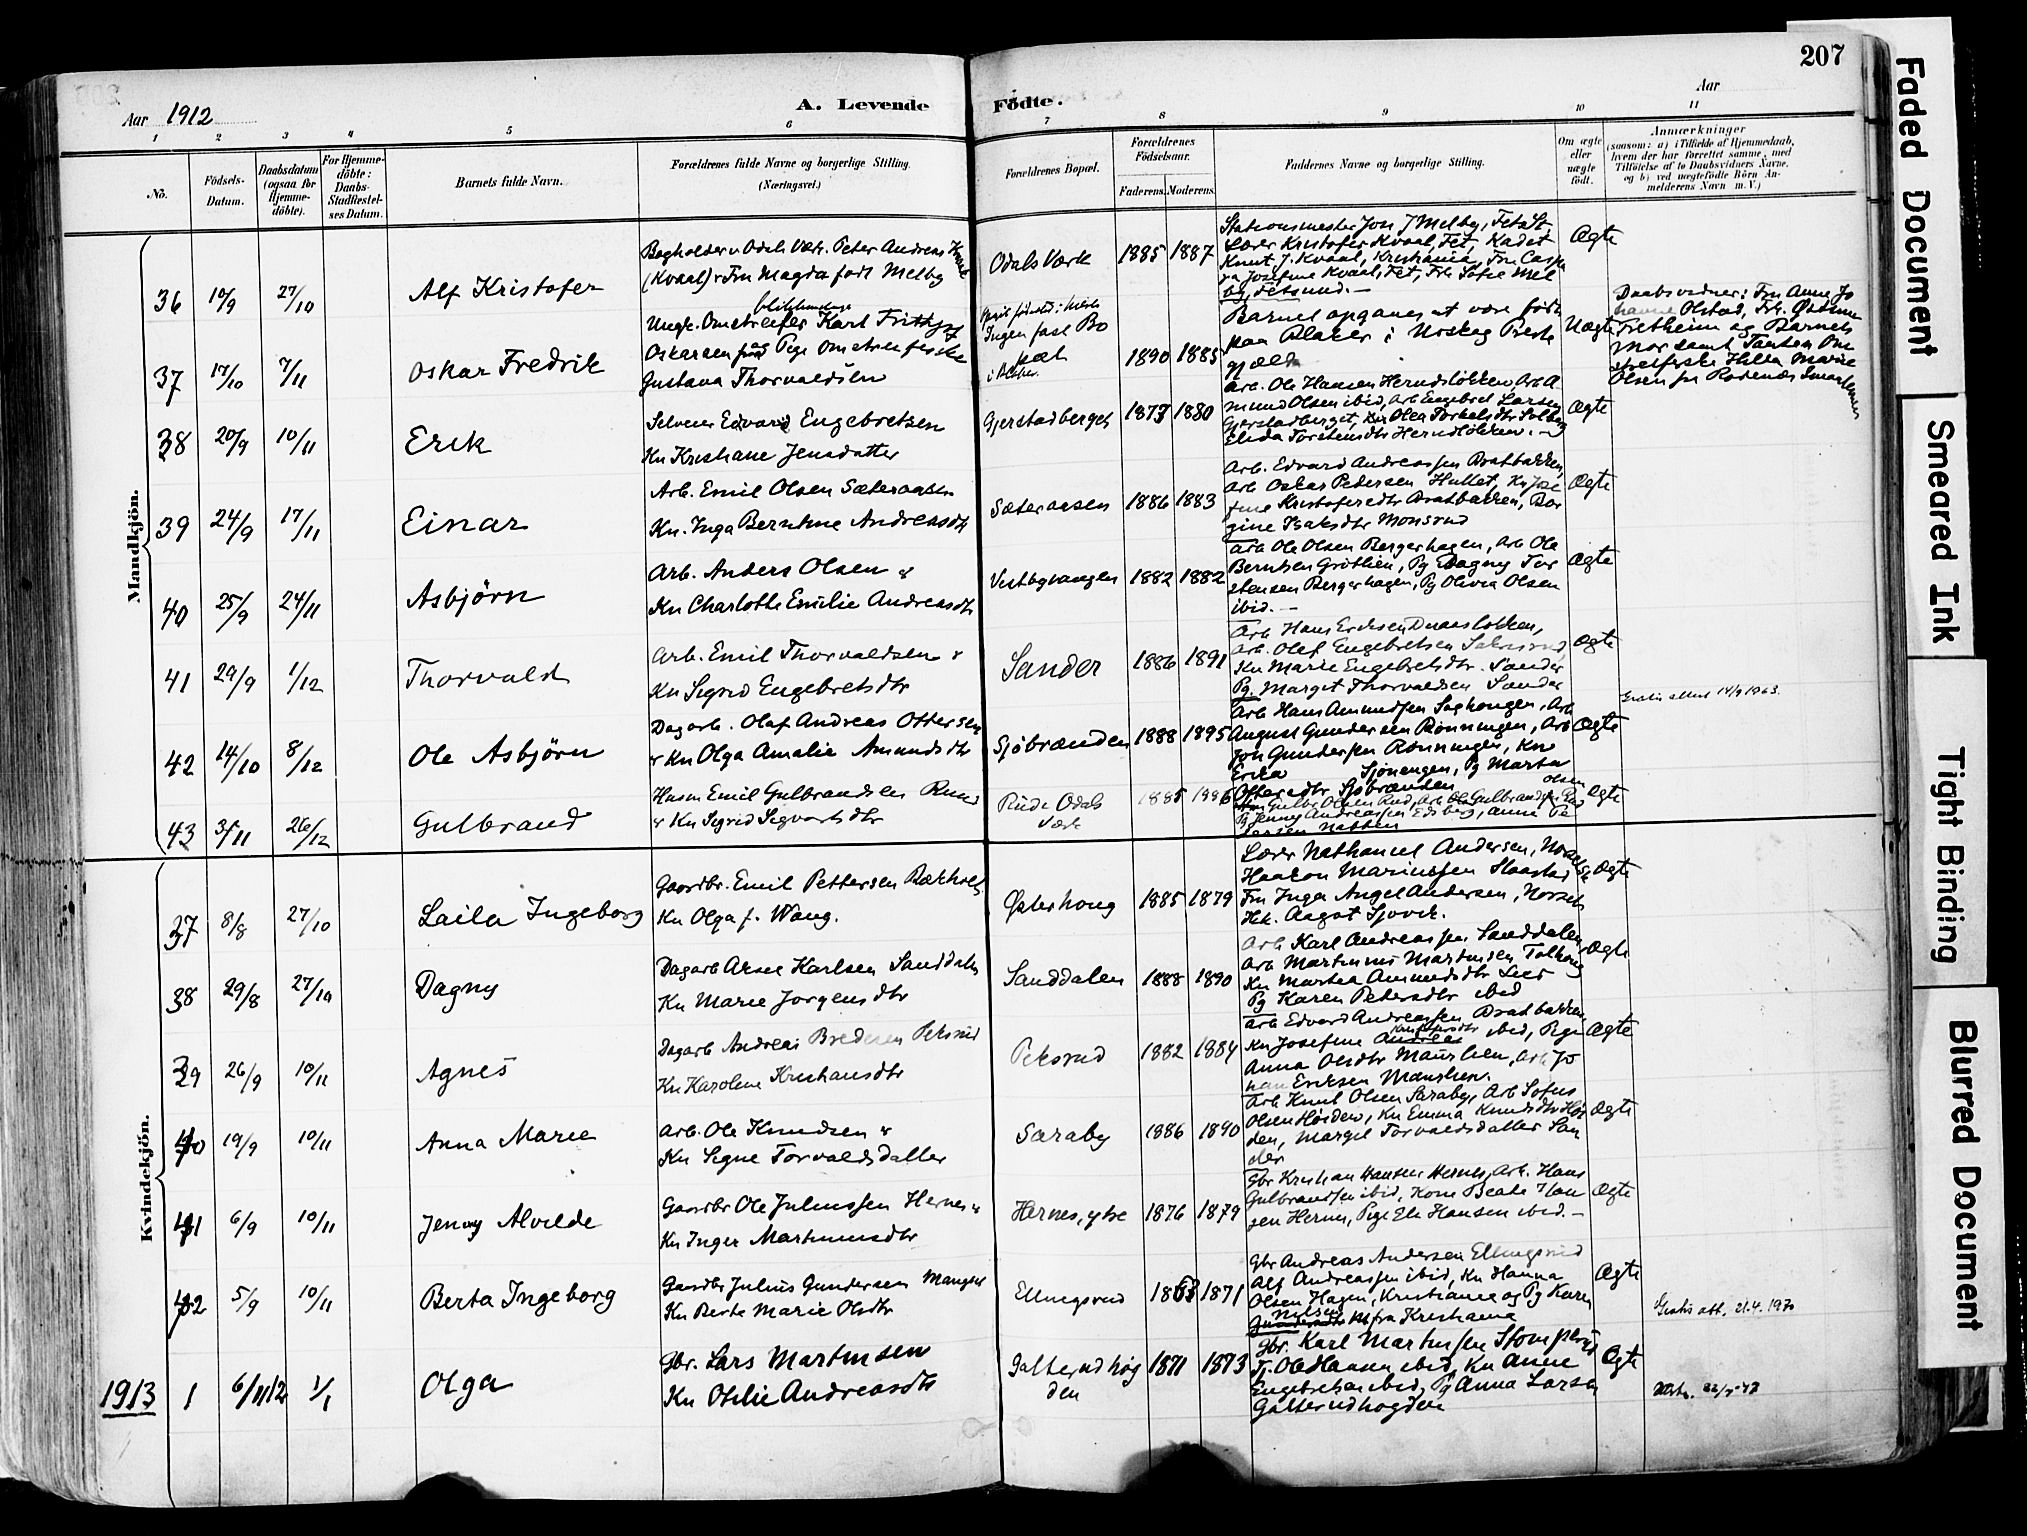 207
Aar 1912
A. Levende
Födte.
Aar
1 2 3 4 5 6 7 8 9 10 11
No.
Födsels-Datum.
Daabsdatum (ogsaa for Hjemme-döbte).
For Hjemme-döbte: Daabs-Stadfæstel-ses Datum.
Barnets fulde Navn.
Forældrenes fulde Navne og borgerlige Stilling.
(Næringsvei.)
Forældrenes Bopæl.
Forældrenes Födselsaar.
Faderens. Moderens.
Faddernes Navne og borgerlige Stilling.
Om ægte eller uægte födt.
Anmærkninger
(saasom: a) i Tilfælde af Hjemmedaab, hvem der har forrettet samme, med Tilföielse af to Daabsvidners Navne, og b) ved uægtefödte Börn An-melderens Navn m. V.)
Mandkjön.
36 10/9 27/10 Alf Kristofer
Bogholder v. Odals Værk Peter Andreas
(Kvaal) v Fru Magda født Melby
Odals Værk 1885 1887
Stationsmester Jon J Melby, Fet St.
Lærer Kristofer Kvaal, Fet, Kadet
Knut J. Kvaal, Kristiania, Fru
Josefine Kvaal, Fet, Frk Sofie Mel
by, Fetsund. —
Ægte
37 17/10 7/11 Oskar Fredrik
Ungk. Omstreifer Karl Frithjof
Oskarsen og Pige Omstreiferske
Gustava Thorvaldsen
Ingen fast Bo
pæl
1890 1885
Barnet opgaves at være født
paa Blaker i Urskog Preste
gjæld
Uægte
Daabsvidner: Fru Anne Jo
hanne Olstad, Frk.
Fretheim og Barnets
Mor samt Tanten Om
streiferske Hilda Marie
Olsen fra Rødenæs Smaalenene
38 20/9 10/11 Erik
Selveier Edvard Engebretsen
Kn Kristiane Jensdatter
Gjerstadberget 1873 1880
Arb. Ole Hansen Herndsløkken, Arb A
mund Olsen ibid, Arb Engebret Larsen
Gjerstadberget, Olea Torkelsdtr
Elida Torstensdtr Herndløkken. —
Ægte
39 24/9 17/11 Einar
Arb. Emil Olsen Sæteraasen
Kn. Inga Berntine Andreasdtr
Sæteraasen 1886 1883
Arb. Edvard Andreassen Bratbakken,
Arb Oskar Pedersen Hullet, Kn Jose
fine Kristofersdtr Bratbakken, Bor
gine Isaksdtr Monsrud
Ægte
40 25/9 24/11 Asbjörn
Arb. Anders Olsen &
Kn Charlotte Emilie Andreasdtr
Vestbyvangen 1882 1882
Arb Ole Olsen Bergerhagen, Arb Ole
Berntsen Grøtlien, Pg Dagny Tor
stensen Bergerhagen, Pg Olivia Olsen
ibid. —
Ægte
41 29/9 1/12 Thorvald
Arb. Emil Thorvaldsen &
Kn Sigrid Engebretsdtr
Sander 1886 1891
Arb Hans Eriksen
Arb. Olaf Engebretsen
Kn Marie Engebretsdtr. Sander
Pg. Margit Thorvaldsen Sander
Ægte
Gratis attest 14/9 1963.
42 14/10 8/12 Ole Asbjörn
Dagarb. Olaf Andreas Ottersen
& Kn Olga Amalie Amundsdtr
Sjøbrænden 1888 1895
Arb Hans Amundsen Saghaugen, Arb
August Gundersen Rønningen, Arb
Jon Gundersen Rønningen, Kone
Erika Sjøvangen, Pg Marta
Ottersdtr Sjøbrænden
Ægte
43 3/11 26/12 Gulbrand
Husm Emil Gulbrandsen Ruud
& Kn Sigrid Sigvartsdtr
Rud Odals
Værk
1885 1886
Gulbr Olsen Rud, Arb Ole Gulbrandsen Rud
Pg Jenny Andreassen Edsberg, Anne Pe
dersen Nabben
Ægte
Kvindekjön.
37 8/8 27/10 Laila Ingeborg
Gaardbr. Emil Pettersen Rækholt
Kn Olga f. Wang.
Østerhaug 1885 1879
Lærer Nathanael Andersen,
Haakon Marinussen Haarstad
Fru Inga Angel Andersen,
Hk. Aagot Sjøvik.
Ægte
38 29/8 27/10 Dagny
Dagarb Aksel Karlsen Sanddalen
Kn Marie Jørgensdtr
Sanddalen 1888 1890
Arb Karl Andreassen Sanddalen,
Arb Martinius Martinsen
Kn Martea Amundsdtr Lier
Pg Karen Petersdtr ibid
Ægte
39 26/9 10/11 Agnes
Dagarb Andreas Bredesen Peksrud
Kn Karoline Kristiansdtr
Peksrud 1882 1884
Arb Edvard Andreassen Bratbakken
Kn Josefine Kristofersdtr ibid, Pige
Anna Olsdtr Maurlien, Arb Jo
han Eriksen Maurlien.
Ægte
40 19/9 10/11 Anna Marie
Arb. Ole Knudsen &
Kn Signe Torvaldsdatter
Saraby 1886 1890
Arb Knut Olsen Saraby, Arb Sofus
Olsen Høiden, Kn Emma Knudsdtr Høi
den, Margit Torvaldsdatter San
der
Ægte
41 6/9 10/11 Jenny Alvilde
Gaardbr Ole Juliussen Hernes &
Kn Inger Martinusdtr
Hernes, ytre 1876 1879
Gbr Kristian Hansen Hernes, Arb. Hans
Gulbrandsen ibid, Kone Beate Han
sen Hernes, Pige Eli Hansen ibid. —
Ægte
42 5/9 10/11 Berta Ingeborg
Gaardbr Julius Gundersen Mangen
Kn Berte Marie Olsdtr
Ellingsrud 1863 1871
Gbr Andreas Andersen Ellingsrud
Alf Andreassen ibid, Kn Hanna
Olsen Hagen, Kristiania og Pg Karen
Nilsen fra Kristiania
Ægte
Gratis att. 21.4.1970
1913 1 6/11 12 1/1 Olga
Gbr. Lars Martinsen
Kn Otilie Andreasdtr
Galterudhøg
den
1871 1873
Gbr. Karl Martinsen Stomperud
Tj. Ole Hansen ibid, Kn Anne
Engebretsen ibid, Pg Anna Larsen
Galterudhøgden
Ægte
22/5-47
Faded Document
Smeared Ink
Tight Binding
Blurred Document